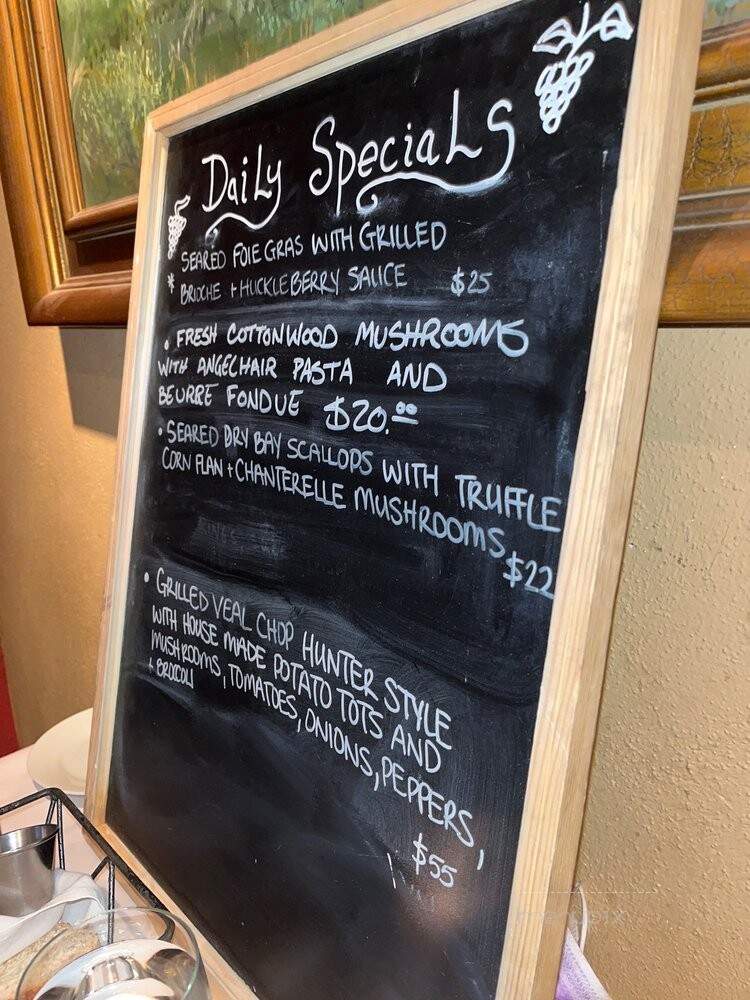 Daily Specials
SEARED FOIE GRAS WITH GRILLED
* BRIOCHE + HUCKLEBERRY SAUCE $25
• FRESH COTTONWOOD MUSHROOMS
WITH ANGELHAIR PASTA AND
BEURRE FONDUE $20.00
• SEARED DRY BAY SCALLOPS WITH TRUFFLE
CORN FLAN + CHANTERELLE MUSHROOMS
$22
• GRILLED VEAL CHOP HUNTER STYLE
WITH HOUSE MADE POTATO TOTS AND
MUSHROOMS, TOMATOES, ONIONS, PEPPERS,
+ BROCOLI
$55